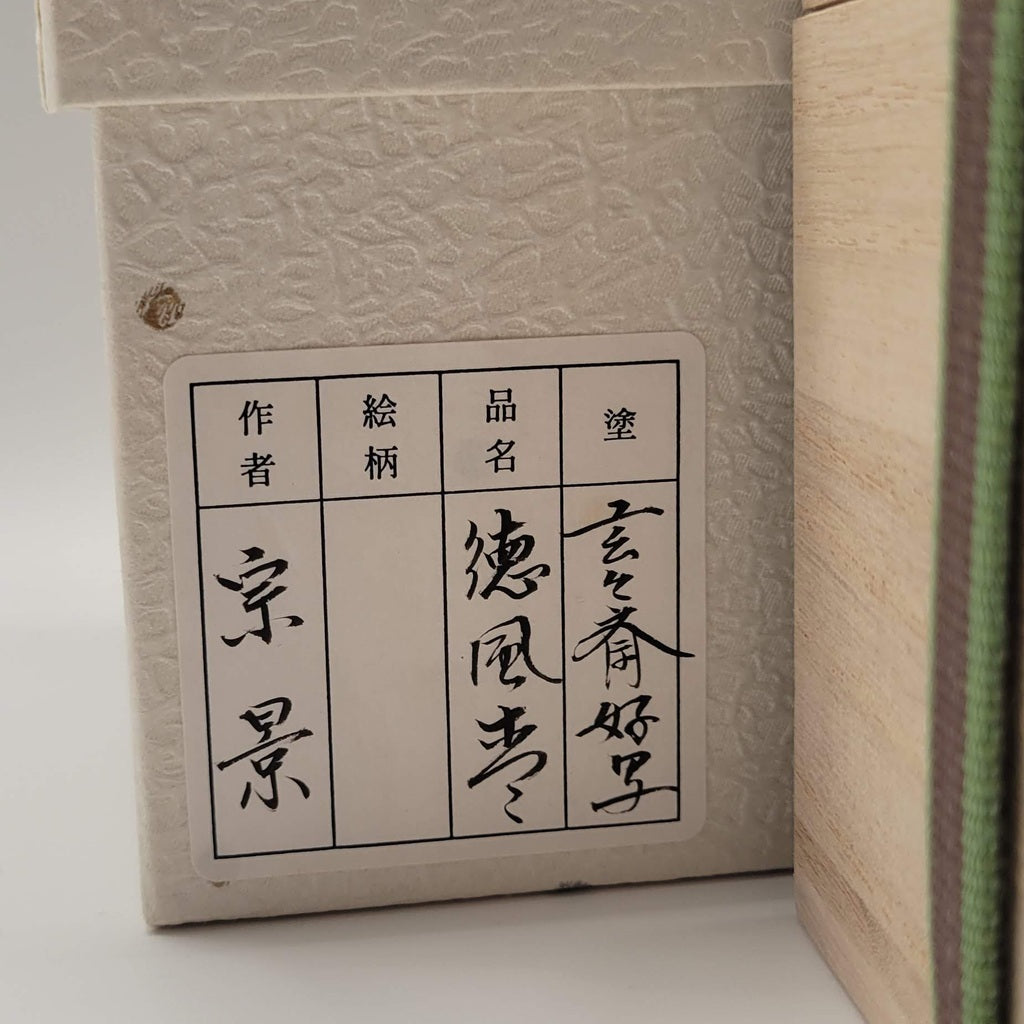 塗
玄々斎好写
品名
徳風棗
絵柄
作者
宗景